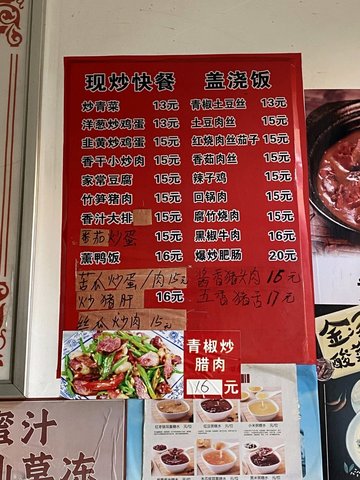 现炒快餐 盖浇饭
炒青菜 13元 青椒土豆丝 13元
洋葱炒鸡蛋 13元 土豆肉丝 15元
韭黄炒鸡蛋 15元 红烧肉丝茄子 15元
香干小炒肉 15元 番茄肉丝 15元
家常豆腐 15元 辣子鸡 15元
竹笋猪肉 15元 回锅肉 15元
香汁大排 15元 腐竹烧肉 15元
番茄炒蛋 15元 黑椒牛肉 16元
薰鸭饭 16元 爆炒肥肠 20元
苦瓜炒蛋/肉15元 酱香猪头肉 15元
炒猪肝 16元 五香猪舌 17元
丝瓜炒肉 15元
青椒炒
腊肉
16元
蜜汁
山墓冻